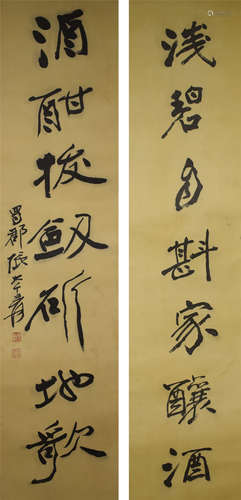 浅碧自斟家釀酒
酒酣拔劔斫地歌
蜀郡張大千爰